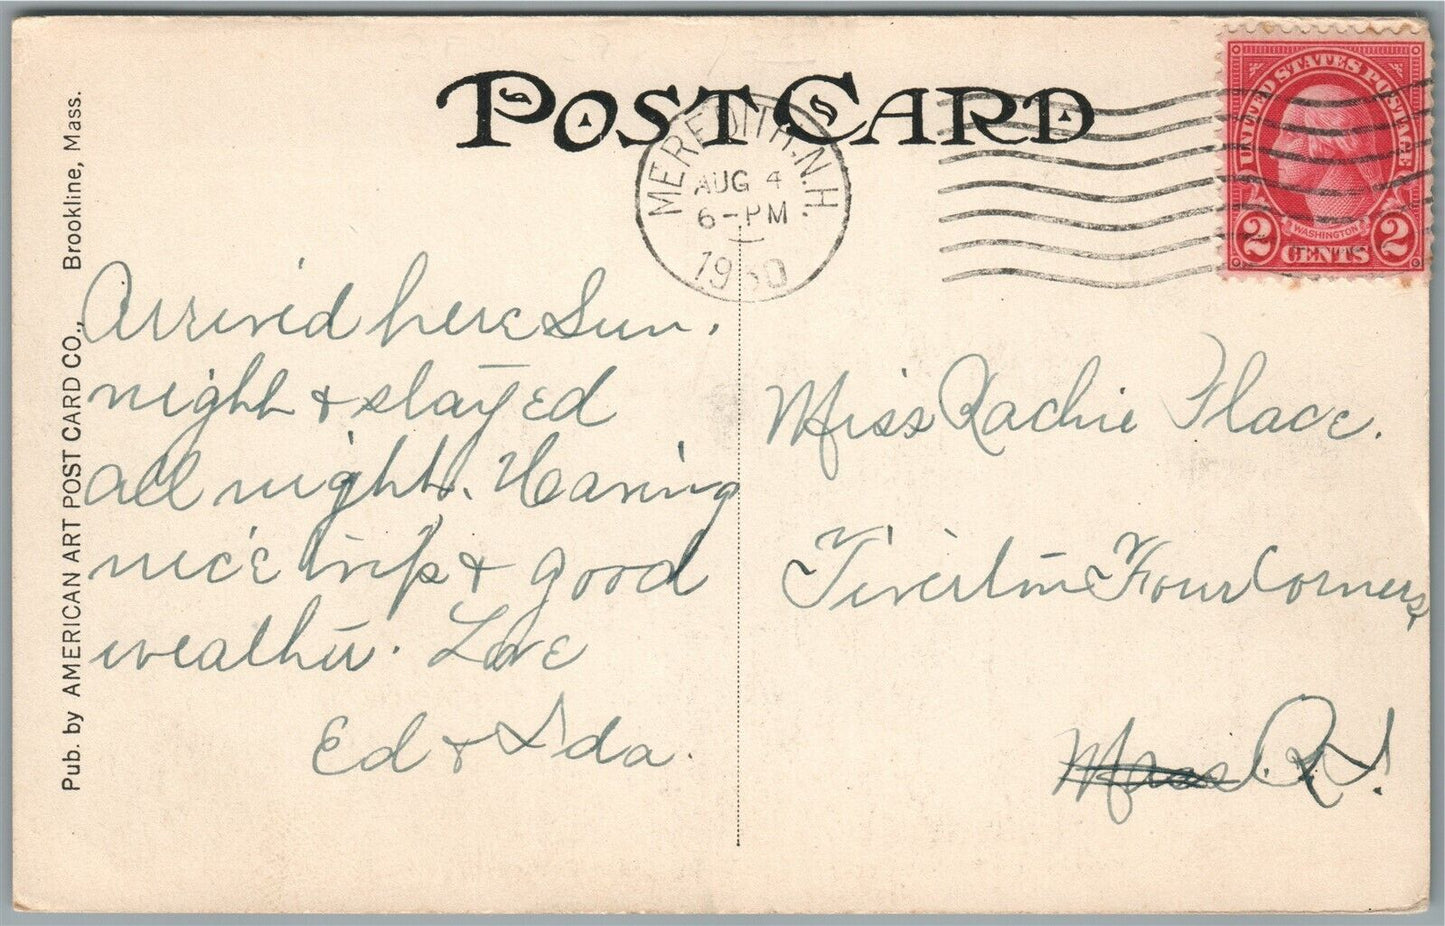 POST CARD
MEREDITH, N.H.
AUG 4
6-PM
1930
UNITED STATES POSTAGE
WASHINGTON
2 CENTS 2
Pub. by AMERICAN ART POST CARD CO., Brookline, Mass.
Arrived here Sun.
night & stayed
all night. Having
nice trip & good
weather. Love
Ed & Ida.
Miss Rachie Place.
Tiverton Four Corners,
Mass. R.I.